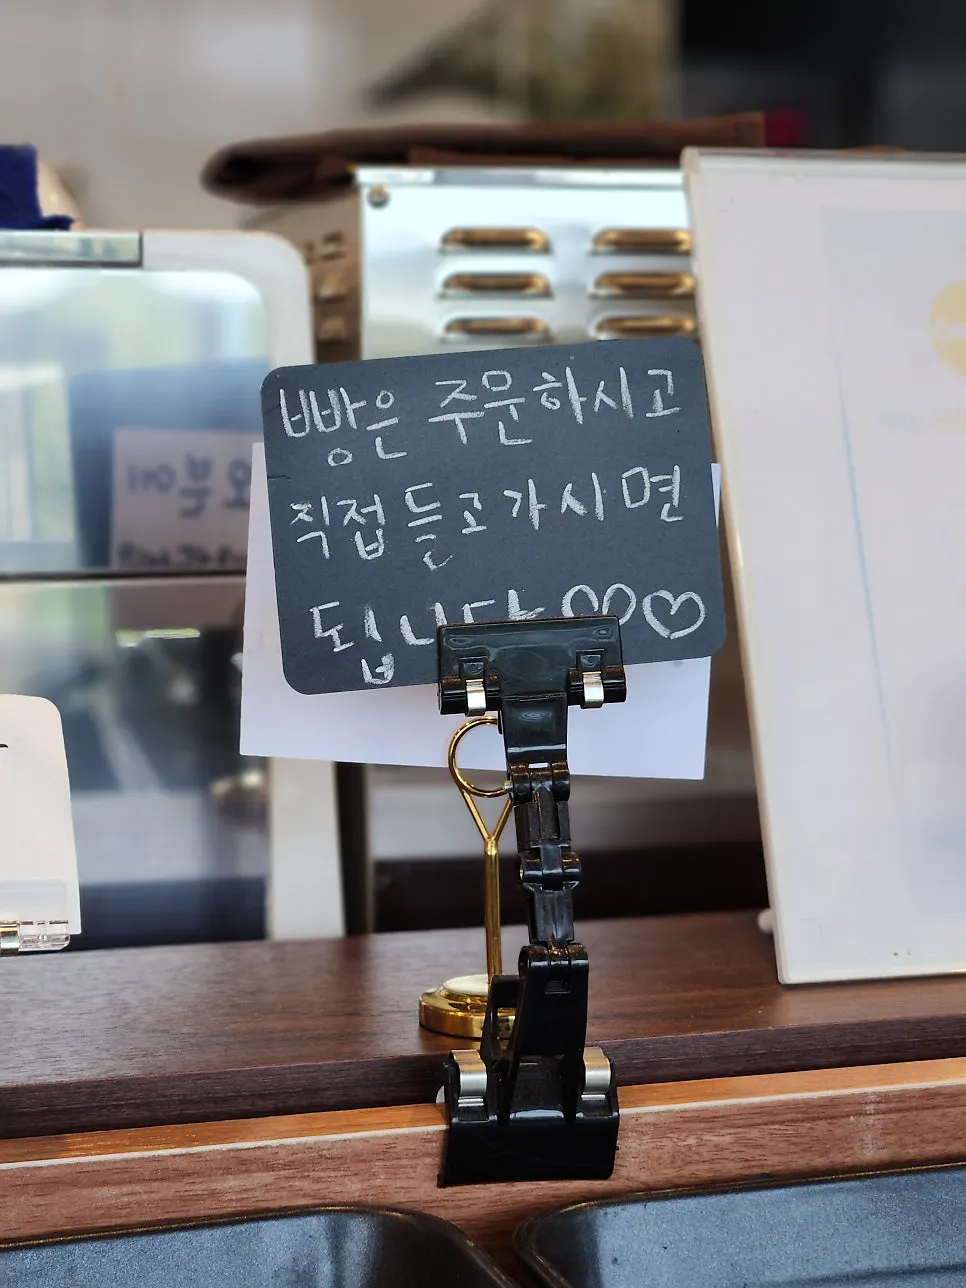 빵은 주문하시고
직접 들고가시면
됩니다♡♡♡